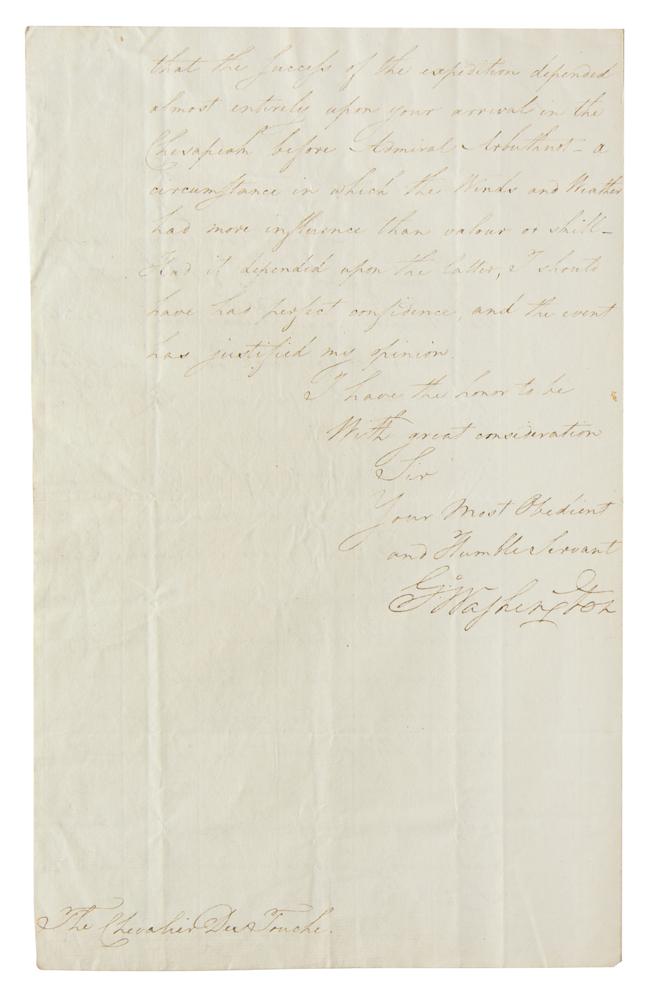 that the success of the expedition depended
almost entirely upon your arrival in the
Chesapeak before Admiral Arbuthnot – a
circumstance in which the Winds and Weather
had more influence than valour or skill –
Had it depended upon the latter, I should
have had perfect confidence, and the event
has justified my opinion.
I have the honor to be
With great consideration
Sir
Your Most Obedient
and Humble Servant
Go: Washington
The Chevalier Des Touche.